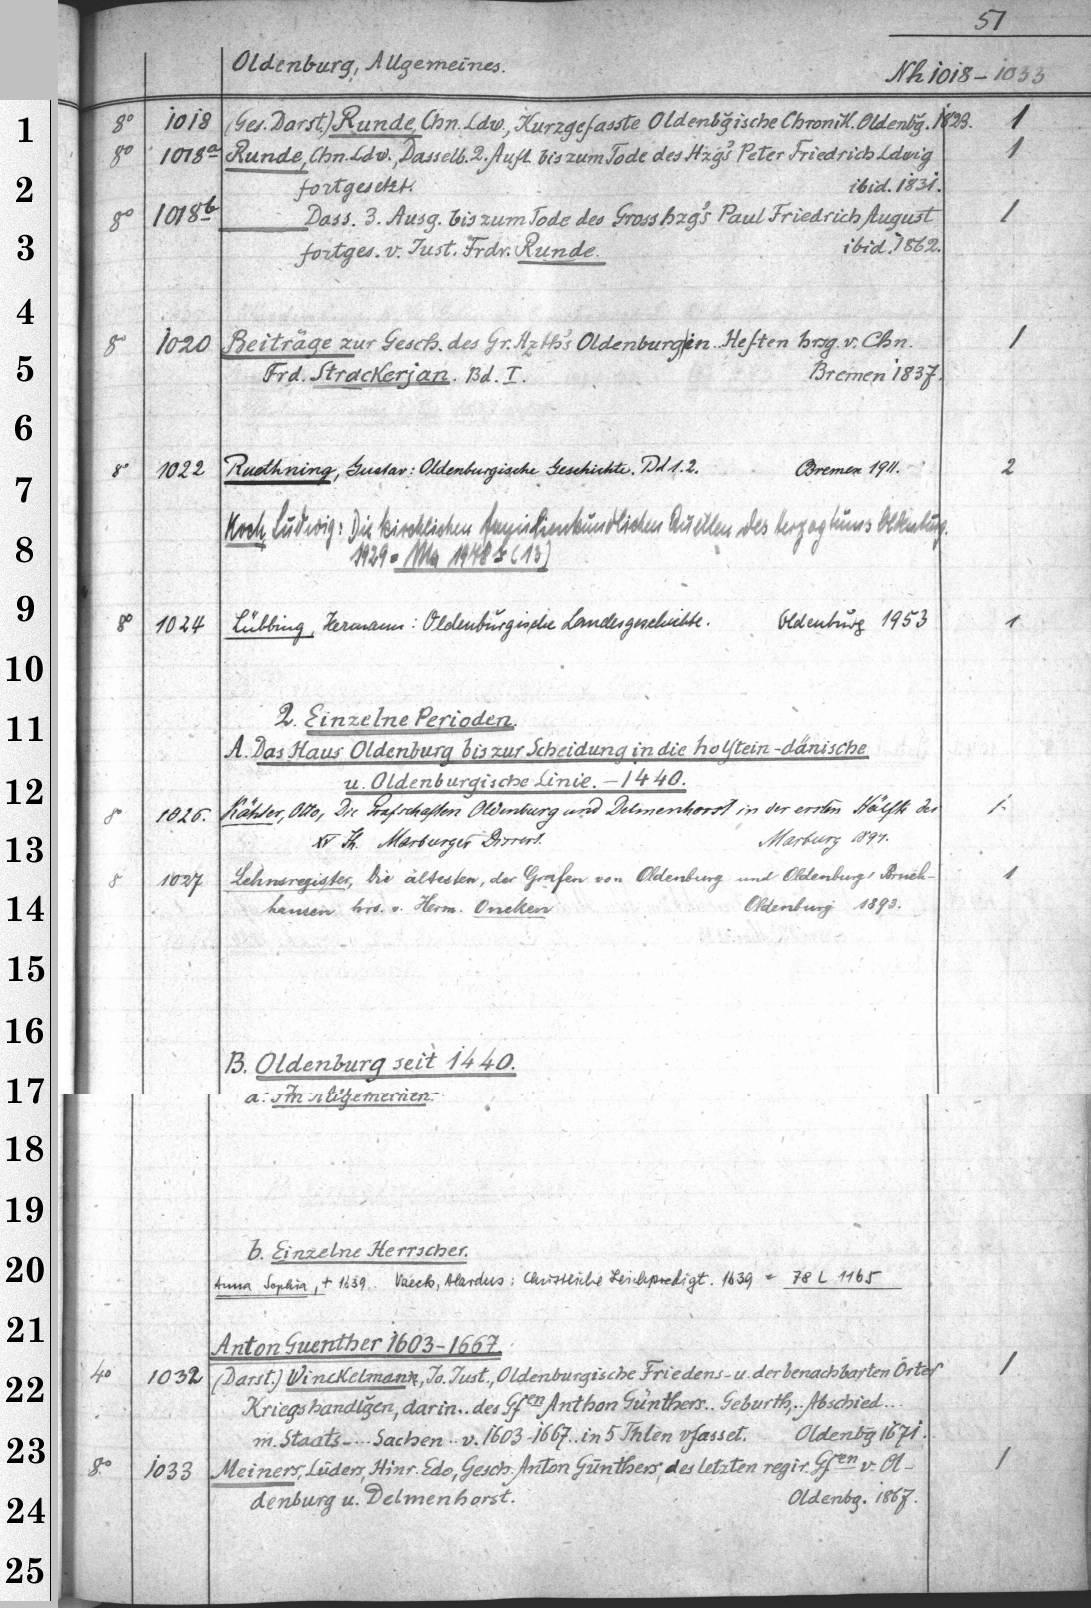 51
Oldenburg, Allgemeines.
Nh 1018-1033
8° 1018 (Ges. Darst.) Runde, Chn. Ldw., Kurzgefasste Oldenbg̃ische Chronik. Oldenbg. 1823. 1
8° 1018a Runde, Chn. Ldw., Dasselb. 2. Aufl. bis zum Tode des Hzg's Peter Friedrich Ldwig 1
fortgesetzt. ibid. 1831.
8° 1018b Dass. 3. Ausg. bis zum Tode des Grosshzg's Paul Friedrich August 1
fortges. v. Just. Frdr. Runde. ibid. 1862.
8° 1020 Beiträge zur Gesch. des Gr. Hzth's Oldenburg in Heften hrsg. v. Chn. 1
Frd. Strackerjan. Bd. I. Bremen 1837.
8° 1022 Ruethning, Gustav: Oldenburgische Geschichte. Bd 1.2. Bremen 1911. 2
Koch Ludwig: Die kirchlichen familienkundlichen Quellen des Herzogtums Oldenburg.
1929 = 1978 (13)
8° 1024 Lübbing, Hermann: Oldenburgische Landesgeschichte. Oldenburg 1953 1
2. Einzelne Perioden.
A. Das Haus Oldenburg bis zur Scheidung in die holstein-dänische
u. Oldenburgische Linie. -1440.
8° 1026. Kähler, Otto, Die Grafschaften Oldenburg und Delmenhorst in der ersten Hälfte des 1.
XV Jh. Marburger Dissert. Marburg 1894.
8 1027 Lehnsregister, Die ältesten, der Grafen von Oldenburg und Oldenburg-Bruch- 1
hausen hrs. v. Herm. Oncken Oldenburg 1893.
B. Oldenburg seit 1440.
a. Im Allgemeinen.
b. Einzelne Herrscher.
Anna Sophia, † 1639. Vaeck, Alardus: Christliche Leichpredigt. 1639 = 78 L 1165
Anton Guenther 1603-1667.
4° 1032 (Darst.) Winckelmann, Jo. Just., Oldenburgische Friedens- u. der benachbarten Örter 1
Kriegshandlgen, darin.. des Gfen Anthon Günthers.. Geburth,.. Abschied...
m. Staats-... Sachen.. v. 1603-1667.. in 5 Thlen vfasset. Oldenbg 1671.
8° 1033 Meiners, Lüders, Hinr. Edo, Gesch. Anton Günthers, des letzten regir. Gfen v. Ol- 1
denburg u. Delmenhorst. Oldenbg. 1867.
1
2
3
4
5
6
7
8
9
10
11
12
13
14
15
16
17
18
19
20
21
22
23
24
25